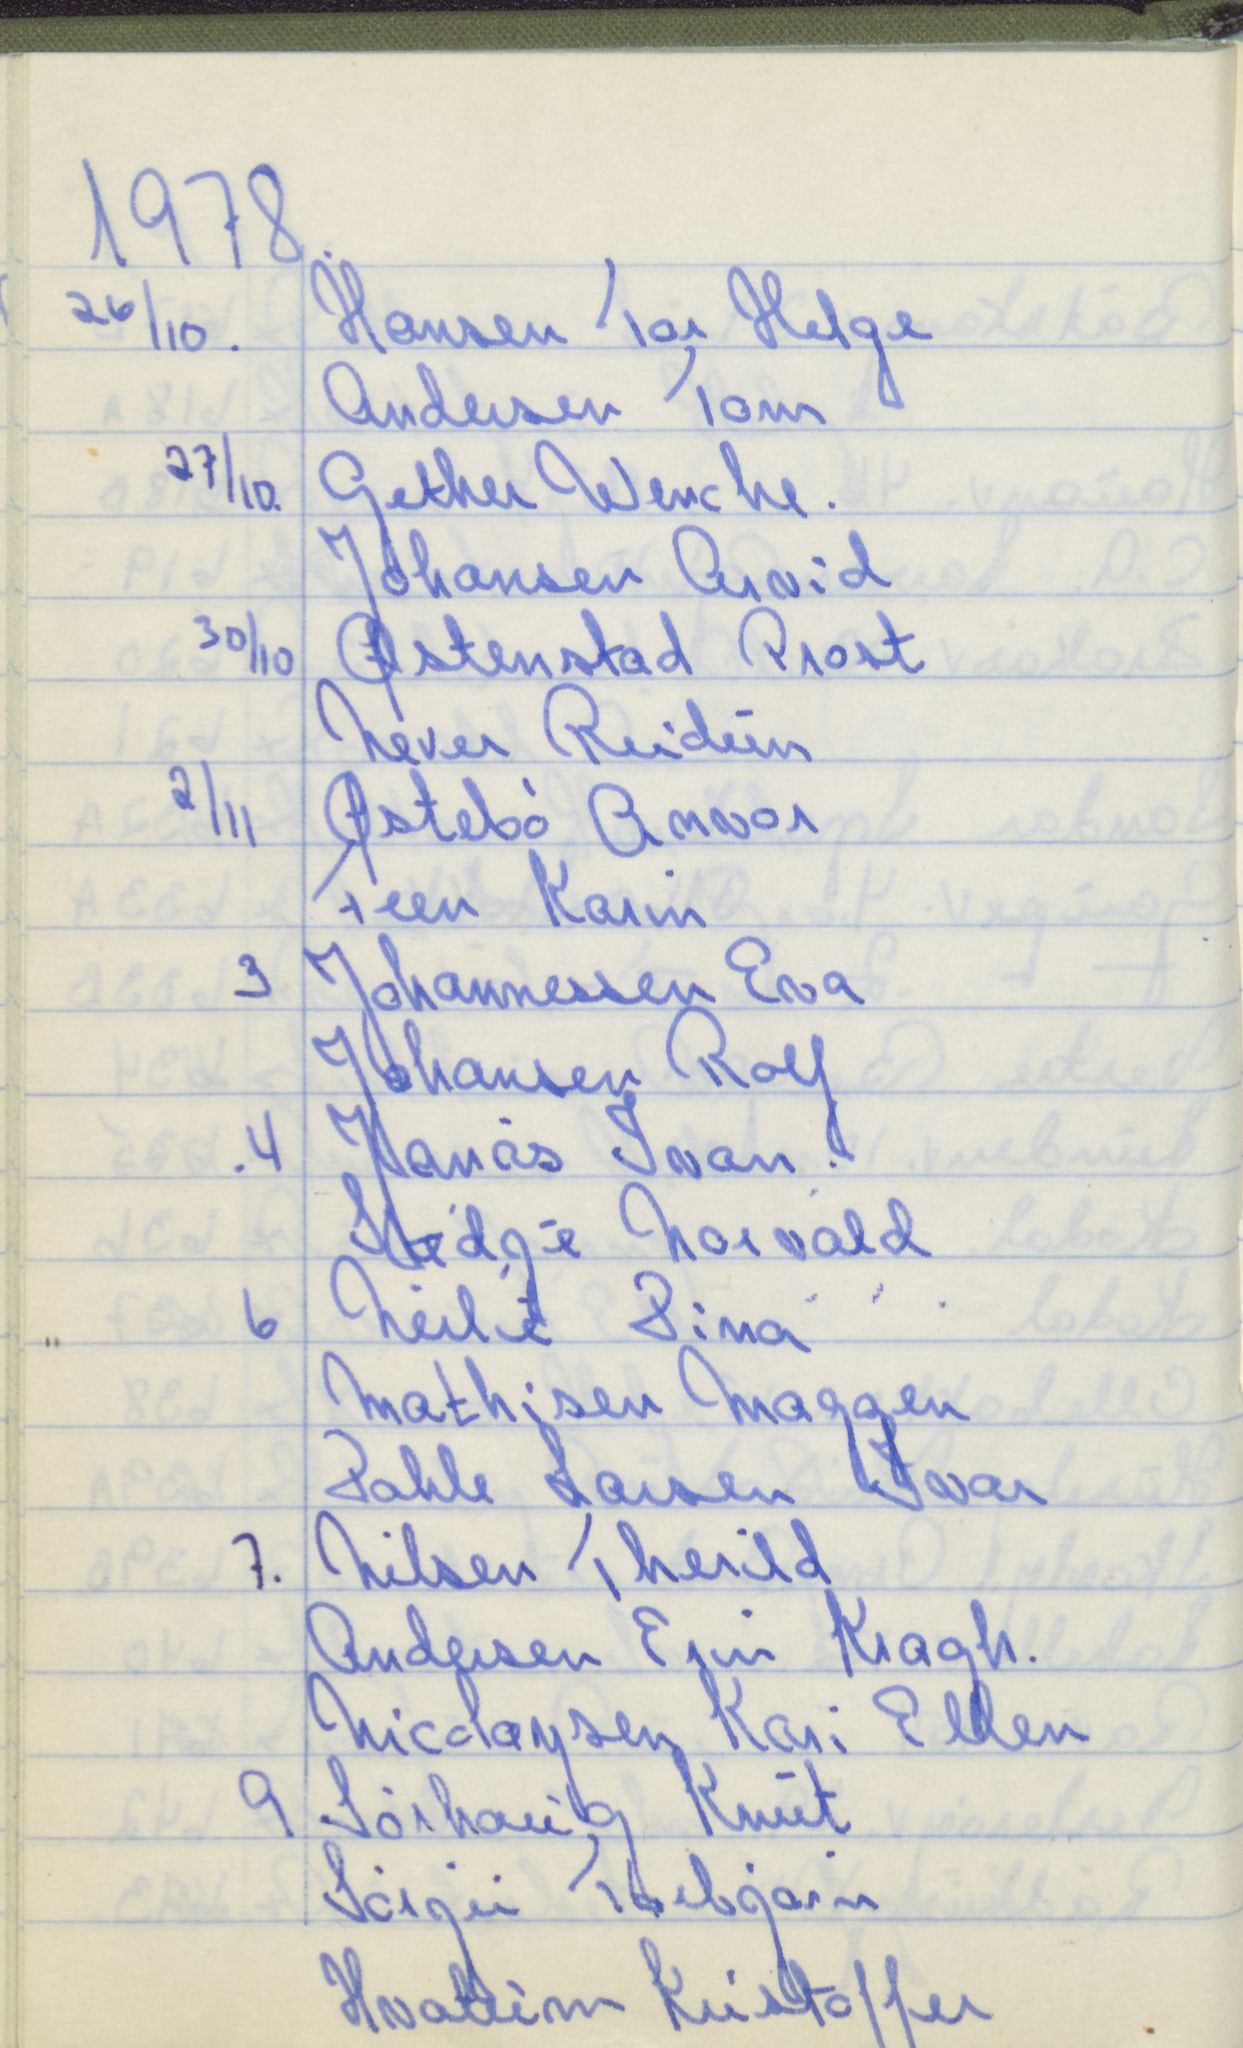 1978.
26/10. Hansen Tor Helge
Andersen Tom
27/10. Gether Wenche.
Johansen Arvid
30/10 Østenstad Prost
Never Reidun
2/11 Østebó Annvor
Teen Karin
3 Johannessen Eva
Johansen Rolf
.4 Hanás Ivan.
Norvald
6 Dina
Mathisen Maggen
Dahle Larsen Ivar
7. Nilsen Therild
Andersen Erin Kragh.
Nicolaysen Kari Ellen
9 Sórhaug Knut
Torbjørn
Hvattum Kristoffer